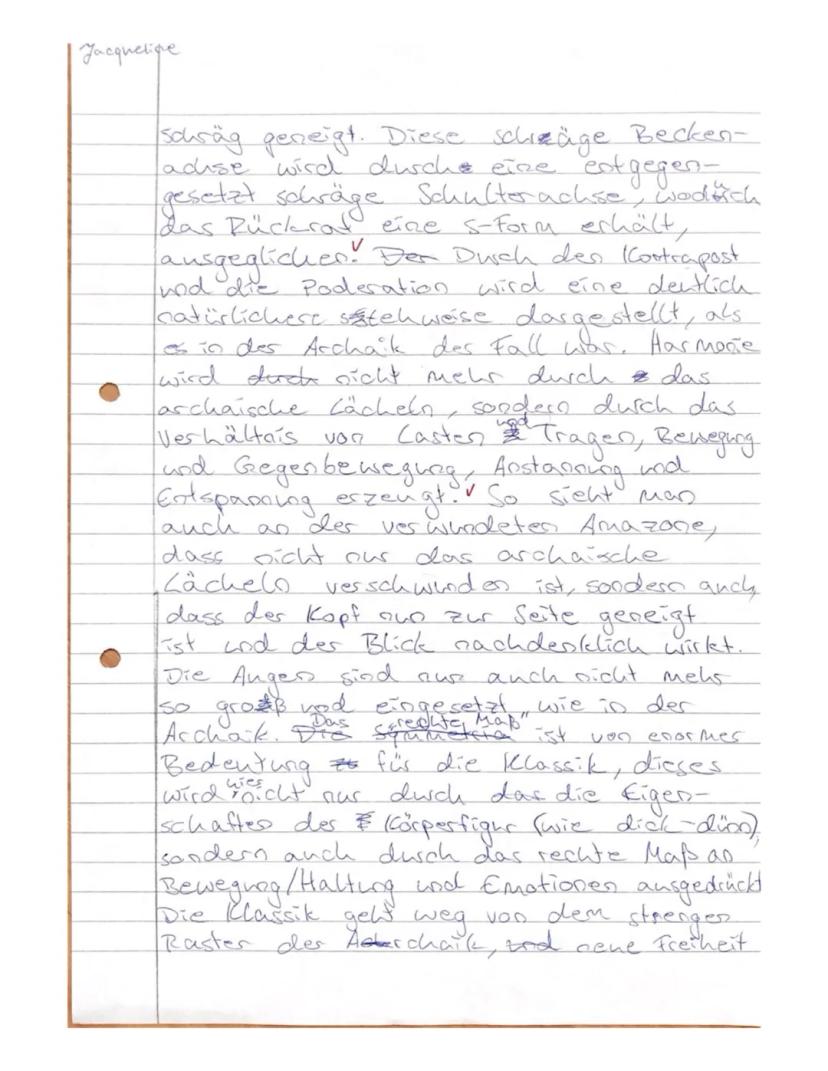 Jacqueline
schräg geneigt. Diese schräge Becken-
achse wird durch eine entgegen-
gesetzt schräge Schulterachse, wodurch
das Rückrat eine S-Form erhält,
ausgeglichen. Durch den Kontrapost
und die Ponderation wird eine deutlich
natürlichere stehweise dargestellt, als
es in der Archaik der Fall war. Harmonie
wird nicht mehr durch das
archaische Lächeln, sondern durch das
Verhältnis von Lasten und Tragen, Bewegung
und Gegenbewegung, Anstannung und
Entspannung erzeugt. So sieht man
auch an der verwundeten Amazone,
dass nicht nur das archaische
Lächeln verschwunden ist, sondern auch,
dass der Kopf nun zur Seite geneigt
ist und der Blick nachdenklich wirkt.
Die Augen sind nun auch nicht mehr
so groß und eingesetzt, wie in der
Archaik. Das "rechte Maß" ist von enormer
Bedeutung für die Klassik, dieses
wird hier nicht nur durch das die Eigen-
schaften der Körperfigur (wie dick-dünn),
sondern auch durch das rechte Maß an
Bewegung/Haltung und Emotionen ausgedrückt
Die Klassik geht weg von dem strengen
Raster der Archaik, neue Freiheit